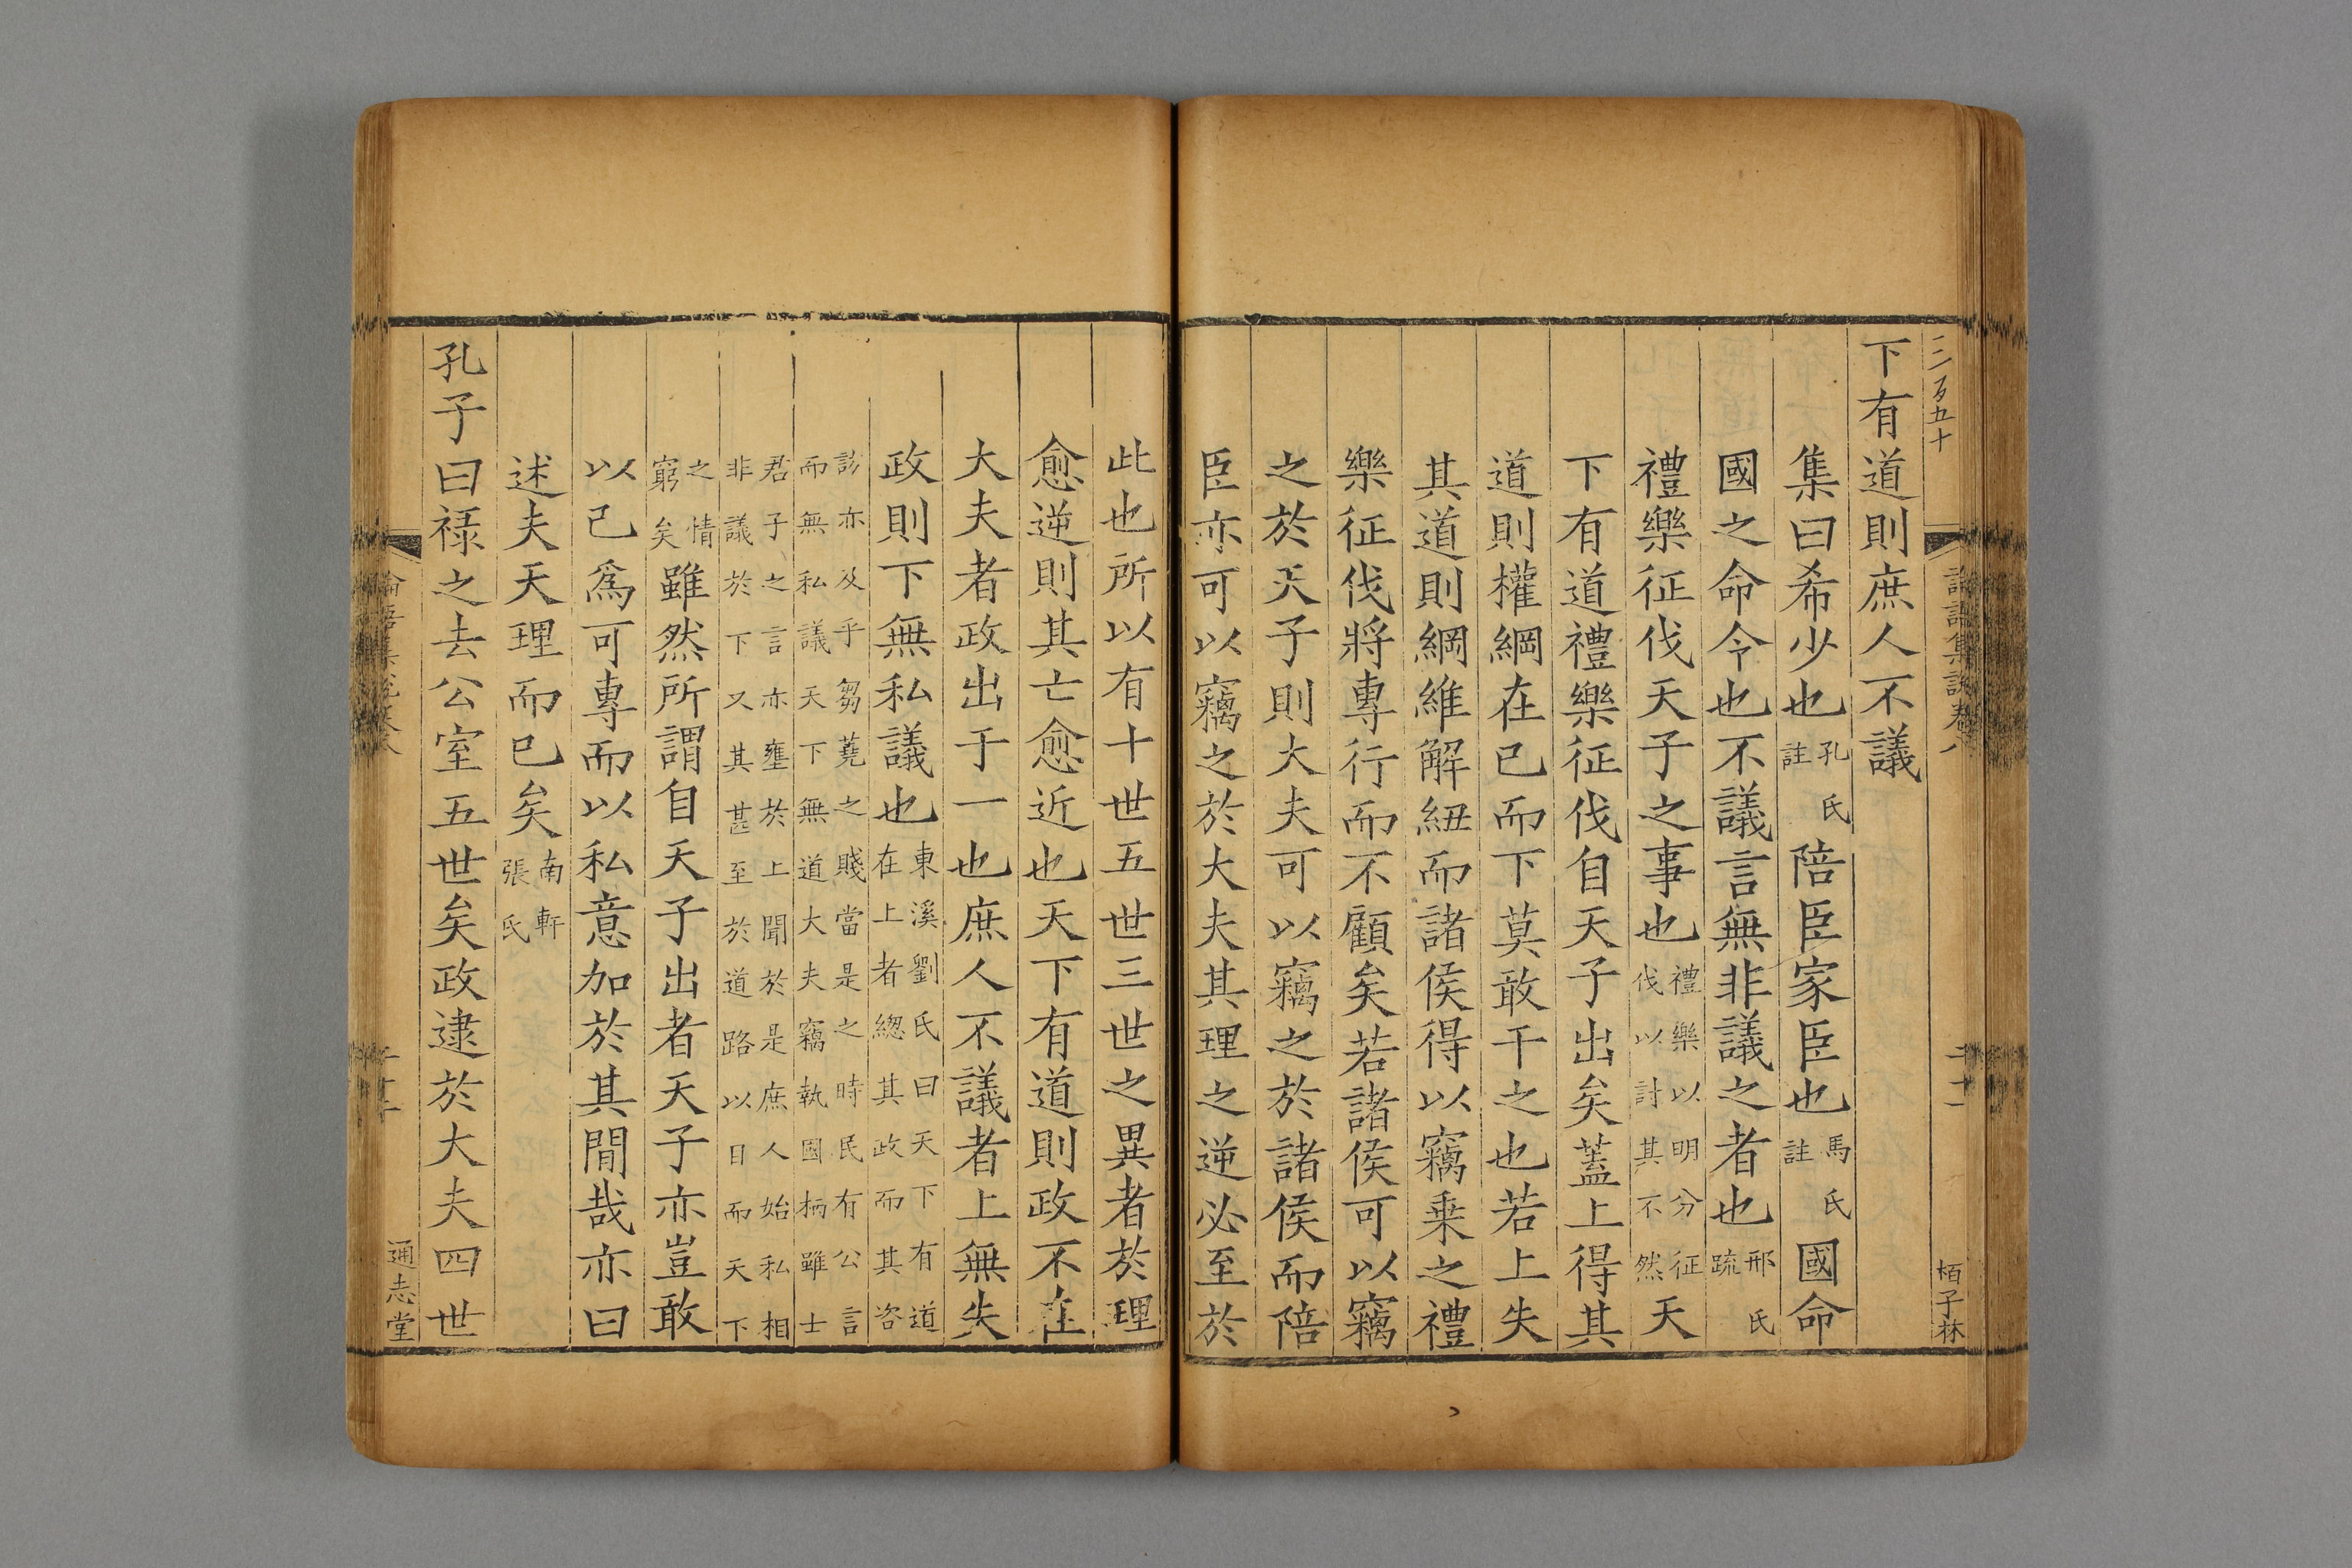 三百五十
論語集說卷八
二十一
栢子林
下有道則庶人不議
集曰希少也孔氏註陪臣家臣也馬氏註國命
國之命令也不議言無非議之者也邢氏疏
禮樂征伐天子之事也禮樂以明分征伐以討其不然天
下有道禮樂征伐自天子出矣蓋上得其
道則權綱在已而下莫敢干之也若上失
其道則綱維解紐而諸侯得以竊乗之禮
樂征伐將專行而不顧矣若諸侯可以竊
之於天子則大夫可以竊之於諸侯而陪
臣亦可以竊之於大夫其理之逆必至於
此也所以有十世五世三世之異者於理
愈逆則其亡愈近也天下有道則政不在
大夫者政出于一也庶人不議者上無失
政則下無私議也東溪劉氏曰天下有道在上者總其政而其咨
訪亦及乎芻蕘之賤當是之時民有公言而無私議天下無道大夫竊執國柄雖士
君子之言亦壅於上聞於是庶人始私相非議於下又其甚至於道路以目而天下
之情窮矣雖然所謂自天子出者天子亦豈敢
以己爲可專而以私意加於其間哉亦曰
述夫天理而已矣南軒張氏
孔子曰祿之去公室五世矣政逮於大夫四世
通志堂